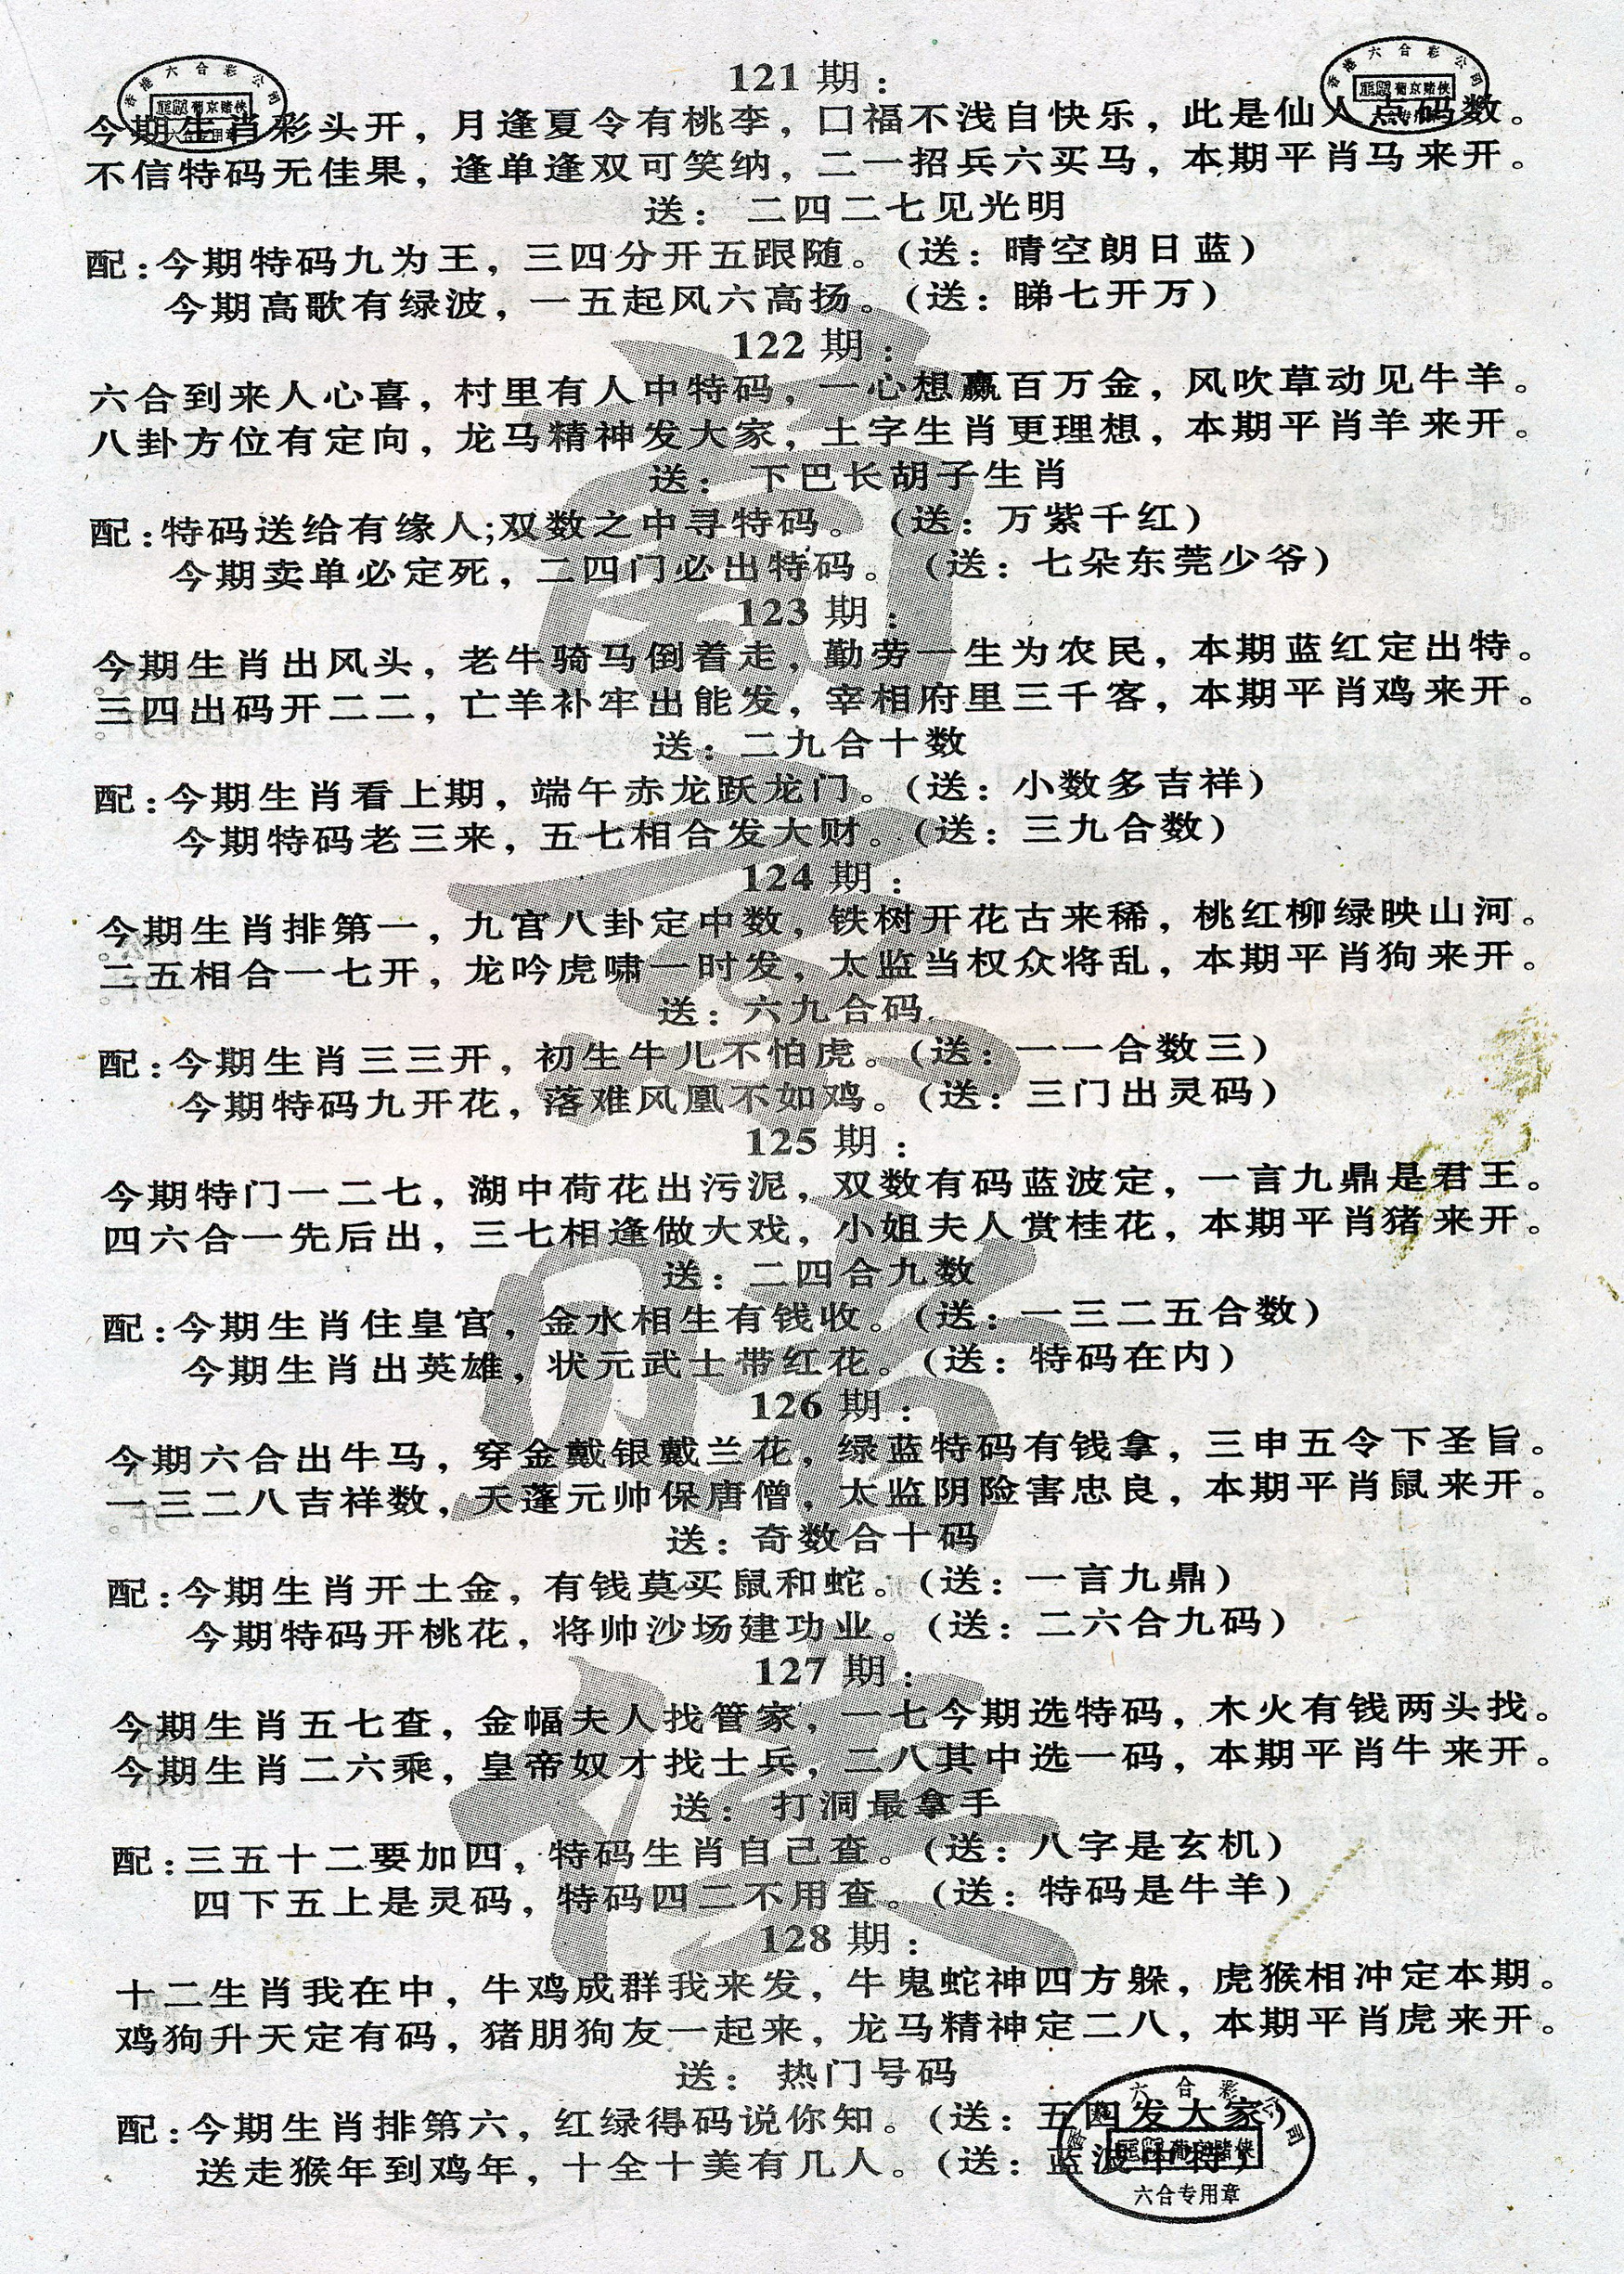 香港六合彩公司
葡京赌侠
六合专用章
香港六合彩公司
葡京赌侠
121期：
今期生肖彩头开，月逢夏令有桃李，口福不浅自快乐，此是仙人点码数。
不信特码无佳果，逢单逢双可笑纳，二一招兵六买马，本期平肖马来开。
送：二四二七见光明
配：今期特码九为王，三四分开五跟随。（送：晴空朗日蓝）
今期高歌有绿波，一五起风六高扬。（送：睇七开万）
122期：
六合到来人心喜，村里有人中特码，一心想赢百万金，风吹草动见牛羊。
八卦方位有定向，龙马精神发大家，土字生肖更理想，本期平肖羊来开。
送：下巴长胡子生肖
配：特码送给有缘人;双数之中寻特码。（送：万紫千红）
今期卖单必定死，二四门必出特码。（送：七朵东莞少爷）
123期：
今期生肖出风头，老牛骑马倒着走，勤劳一生为农民，本期蓝红定出特。
三四出码开二二，亡羊补牢出能发，宰相府里三千客，本期平肖鸡来开。
送：二九合十数
配：今期生肖看上期，端午赤龙跃龙门。（送：小数多吉祥）
今期特码老三来，五七相合发大财。（送：三九合数）
124期：
今期生肖排第一，九宫八卦定中数，铁树开花古来稀，桃红柳绿映山河。
二五相合一七开，龙吟虎啸一时发，太监当权众将乱，本期平肖狗来开。
送：六九合码
配：今期生肖三三开，初生牛儿不怕虎。（送：一一合数三）
今期特码九开花，落难风凰不如鸡。（送：三门出灵码）
125期：
今期特门一二七，湖中荷花出污泥，双数有码蓝波定，一言九鼎是君王。
四六合一先后出，三七相逢做大戏，小姐夫人赏桂花，本期平肖猪来开。
送：二四合九数
配：今期生肖住皇宫，金水相生有钱收。（送：一三二五合数）
今期生肖出英雄，状元武士带红花。（送：特码在内）
126期：
今期六合出牛马，穿金戴银戴兰花，绿蓝特码有钱拿，三申五令下圣旨。
一三二八吉祥数，天蓬元帅保唐僧，太监阴险害忠良，本期平肖鼠来开。
送：奇数合十码
配：今期生肖开土金，有钱莫买鼠和蛇。（送：一言九鼎）
今期特码开桃花，将帅沙场建功业。（送：二六合九码）
127期：
今期生肖五七查，金幅夫人找管家，一七今期选特码，木火有钱两头找。
今期生肖二六乘，皇帝奴才找士兵，二八其中选一码，本期平肖牛来开。
送：打洞最拿手
配：三五十二要加四，特码生肖自己查。（送：八字是玄机）
四下五上是灵码，特码四二不用查。（送：特码是牛羊）
128期：
十二生肖我在中，牛鸡成群我来发，牛鬼蛇神四方躲，虎猴相冲定本期。
鸡狗升天定有码，猪朋狗友一起来，龙马精神定二八，本期平肖虎来开。
送：热门号码
配：今期生肖排第六，红绿得码说你知。（送：五四发大家）
送走猴年到鸡年，十全十美有几人。（送：蓝波中特）
六合彩公司
葡京赌侠
六合专用章